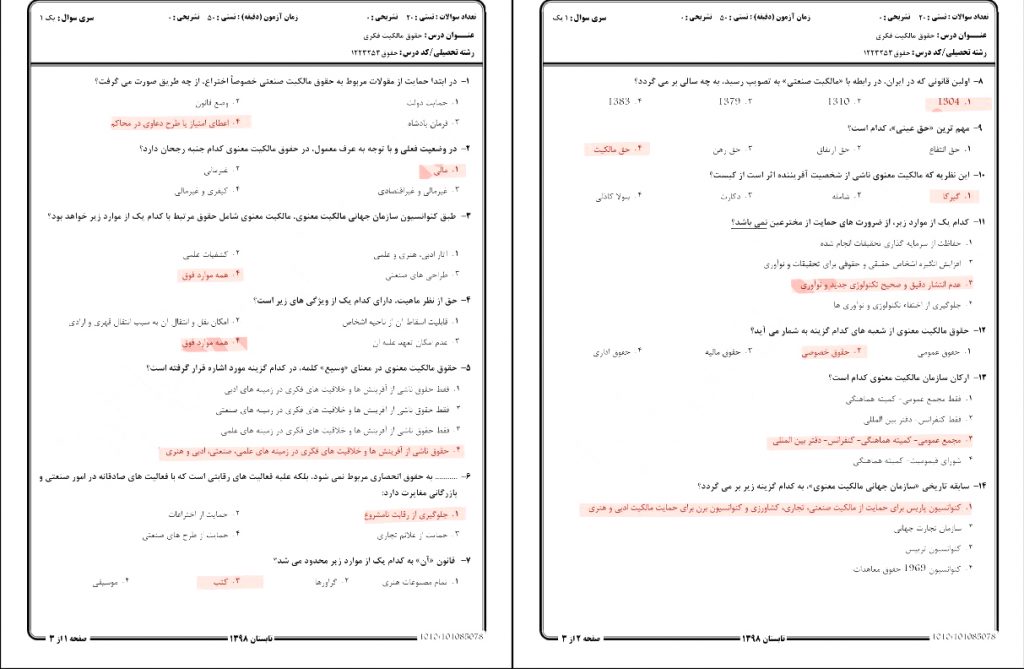 سری سوال: ۱ یک
زمان آزمون (دقیقه): تستی: ۵۰ تشریحی: ۰
تعداد سوالات: تستی: ۲۰ تشریحی: ۰
عنـــوان درس: حقوق مالکیت فکری
رشته تحصیلی/کد درس: حقوق ۱۲۲۳۲۵۳
۱- در ابتدا حمایت از مقولات مربوط به حقوق مالکیت صنعتی خصوصاً اختراع، از چه طریق صورت می گرفت؟
۱. حمایت دولت
۲. وضع قانون
۳. فرمان پادشاه
۴. اعطای امتیاز یا طرح دعاوی در محاکم
۲- در وضعیت فعلی و با توجه به عرف معمول، در حقوق مالکیت معنوی کدام جنبه رجحان دارد؟
۱. مالی
۲. غیرمالی
۳. غیرمالی و غیراقتصادی
۴. کیفری و غیرمالی
۳- طبق کنوانسیون سازمان جهانی مالکیت معنوی، مالکیت معنوی شامل حقوق مرتبط با کدام یک از موارد زیر خواهد بود؟
۱. آثار ادبی، هنری و علمی
۲. کشفیات علمی
۳. طراحی های صنعتی
۴. همه موارد فوق
۴- حق از نظر ماهیت، دارای کدام یک از ویژگی های زیر است؟
۱. قابلیت اسقاط آن از ناحیه اشخاص
۲. امکان نقل و انتقال آن به سبب انتقال قهری و ارادی
۳. عدم امکان تعهد علیه آن
۴. همه موارد فوق
۵- حقوق مالکیت معنوی در معنای «وسیع» کلمه، در کدام گزینه مورد اشاره قرار گرفته است؟
۱. فقط حقوق ناشی از آفرینش ها و خلاقیت های فکری در زمینه های ادبی
۲. فقط حقوق ناشی از آفرینش ها و خلاقیت های فکری در زمینه های صنعتی
۳. فقط حقوق ناشی از آفرینش ها و خلاقیت های فکری در زمینه های علمی
۴. حقوق ناشی از آفرینش ها و خلاقیت های فکری در زمینه های علمی، صنعتی، ادبی و هنری
۶- .......... به حقوق انحصاری مربوط نمی شود، بلکه علیه فعالیت های رقابتی است که با فعالیت های صادقانه در امور صنعتی و
بازرگانی مغایرت دارد:
۱. جلوگیری از رقابت نامشروع
۲. حمایت از اختراعات
۳. حمایت از علائم تجاری
۴. حمایت از طرح های صنعتی
۷- قانون «آن» به کدام یک از موارد زیر محدود می شد؟
۱. تمام مصنوعات هنری
۲. گراورها
۳. کتب
۴. موسیقی
صفحه ۱ از ۳
تابستان ۱۳۹۸
1010/101085078
سری سوال: ۱ یک
زمان آزمون (دقیقه): تستی: ۵۰ تشریحی: ۰
تعداد سوالات: تستی: ۲۰ تشریحی: ۰
عنـــوان درس: حقوق مالکیت فکری
رشته تحصیلی/کد درس: حقوق ۱۲۲۳۲۵۳
۸- اولین قانونی که در ایران، در رابطه با «مالکیت صنعتی» به تصویب رسید، به چه سالی بر می گردد؟
۱. 1304
۲. 1310
۳. 1379
۴. 1383
۹- مهم ترین «حق عینی»، کدام است؟
۱. حق انتفاع
۲. حق ارتفاق
۳. حق رهن
۴. حق مالکیت
۱۰- این نظریه که مالکیت معنوی ناشی از شخصیت آفریننده اثر است از کیست؟
۱. گیرکا
۲. شامته
۳. دکارت
۴. پیولا کاذلی
۱۱- کدام یک از موارد زیر، از ضرورت های حمایت از مخترعین نمی باشد؟
۱. حفاظت از سرمایه گذاری تحقیقات انجام شده
۲. افزایش انگیزه اشخاص حقیقی و حقوقی برای تحقیقات و نوآوری
۳. عدم انتشار دقیق و صحیح تکنولوژی جدید و نوآوری
۴. جلوگیری از اختفاء تکنولوژی و نوآوری ها
۱۲- حقوق مالکیت معنوی از شعبه های کدام گزینه به شمار می آید؟
۱. حقوق عمومی
۲. حقوق خصوصی
۳. حقوق مالیه
۴. حقوق اداری
۱۳- ارکان سازمان مالکیت معنوی کدام است؟
۱. فقط مجمع عمومی- کمیته هماهنگی
۲. فقط کنفرانس- دفتر بین المللی
۳. مجمع عمومی- کمیته هماهنگی- کنفرانس- دفتر بین المللی
۴. شورای قیمومیت- کمیته هماهنگی
۱۴- سابقه تاریخی «سازمان جهانی مالکیت معنوی»، به کدام گزینه زیر بر می گردد؟
۱. کنوانسیون پاریس برای حمایت از مالکیت صنعتی، تجاری، کشاورزی و کنوانسیون برن برای حمایت مالکیت ادبی و هنری
۲. سازمان تجارت جهانی
۳. کنوانسیون تریپس
۴. کنوانسیون 1969 حقوق معاهدات
صفحه ۲ از ۳
تابستان ۱۳۹۸
1010/101085078